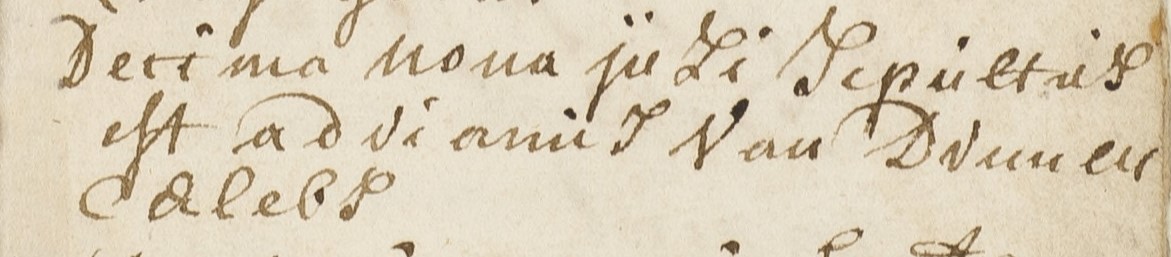 Decima nona juli Sepultus
est adrianus Van Drunen
Cælebs